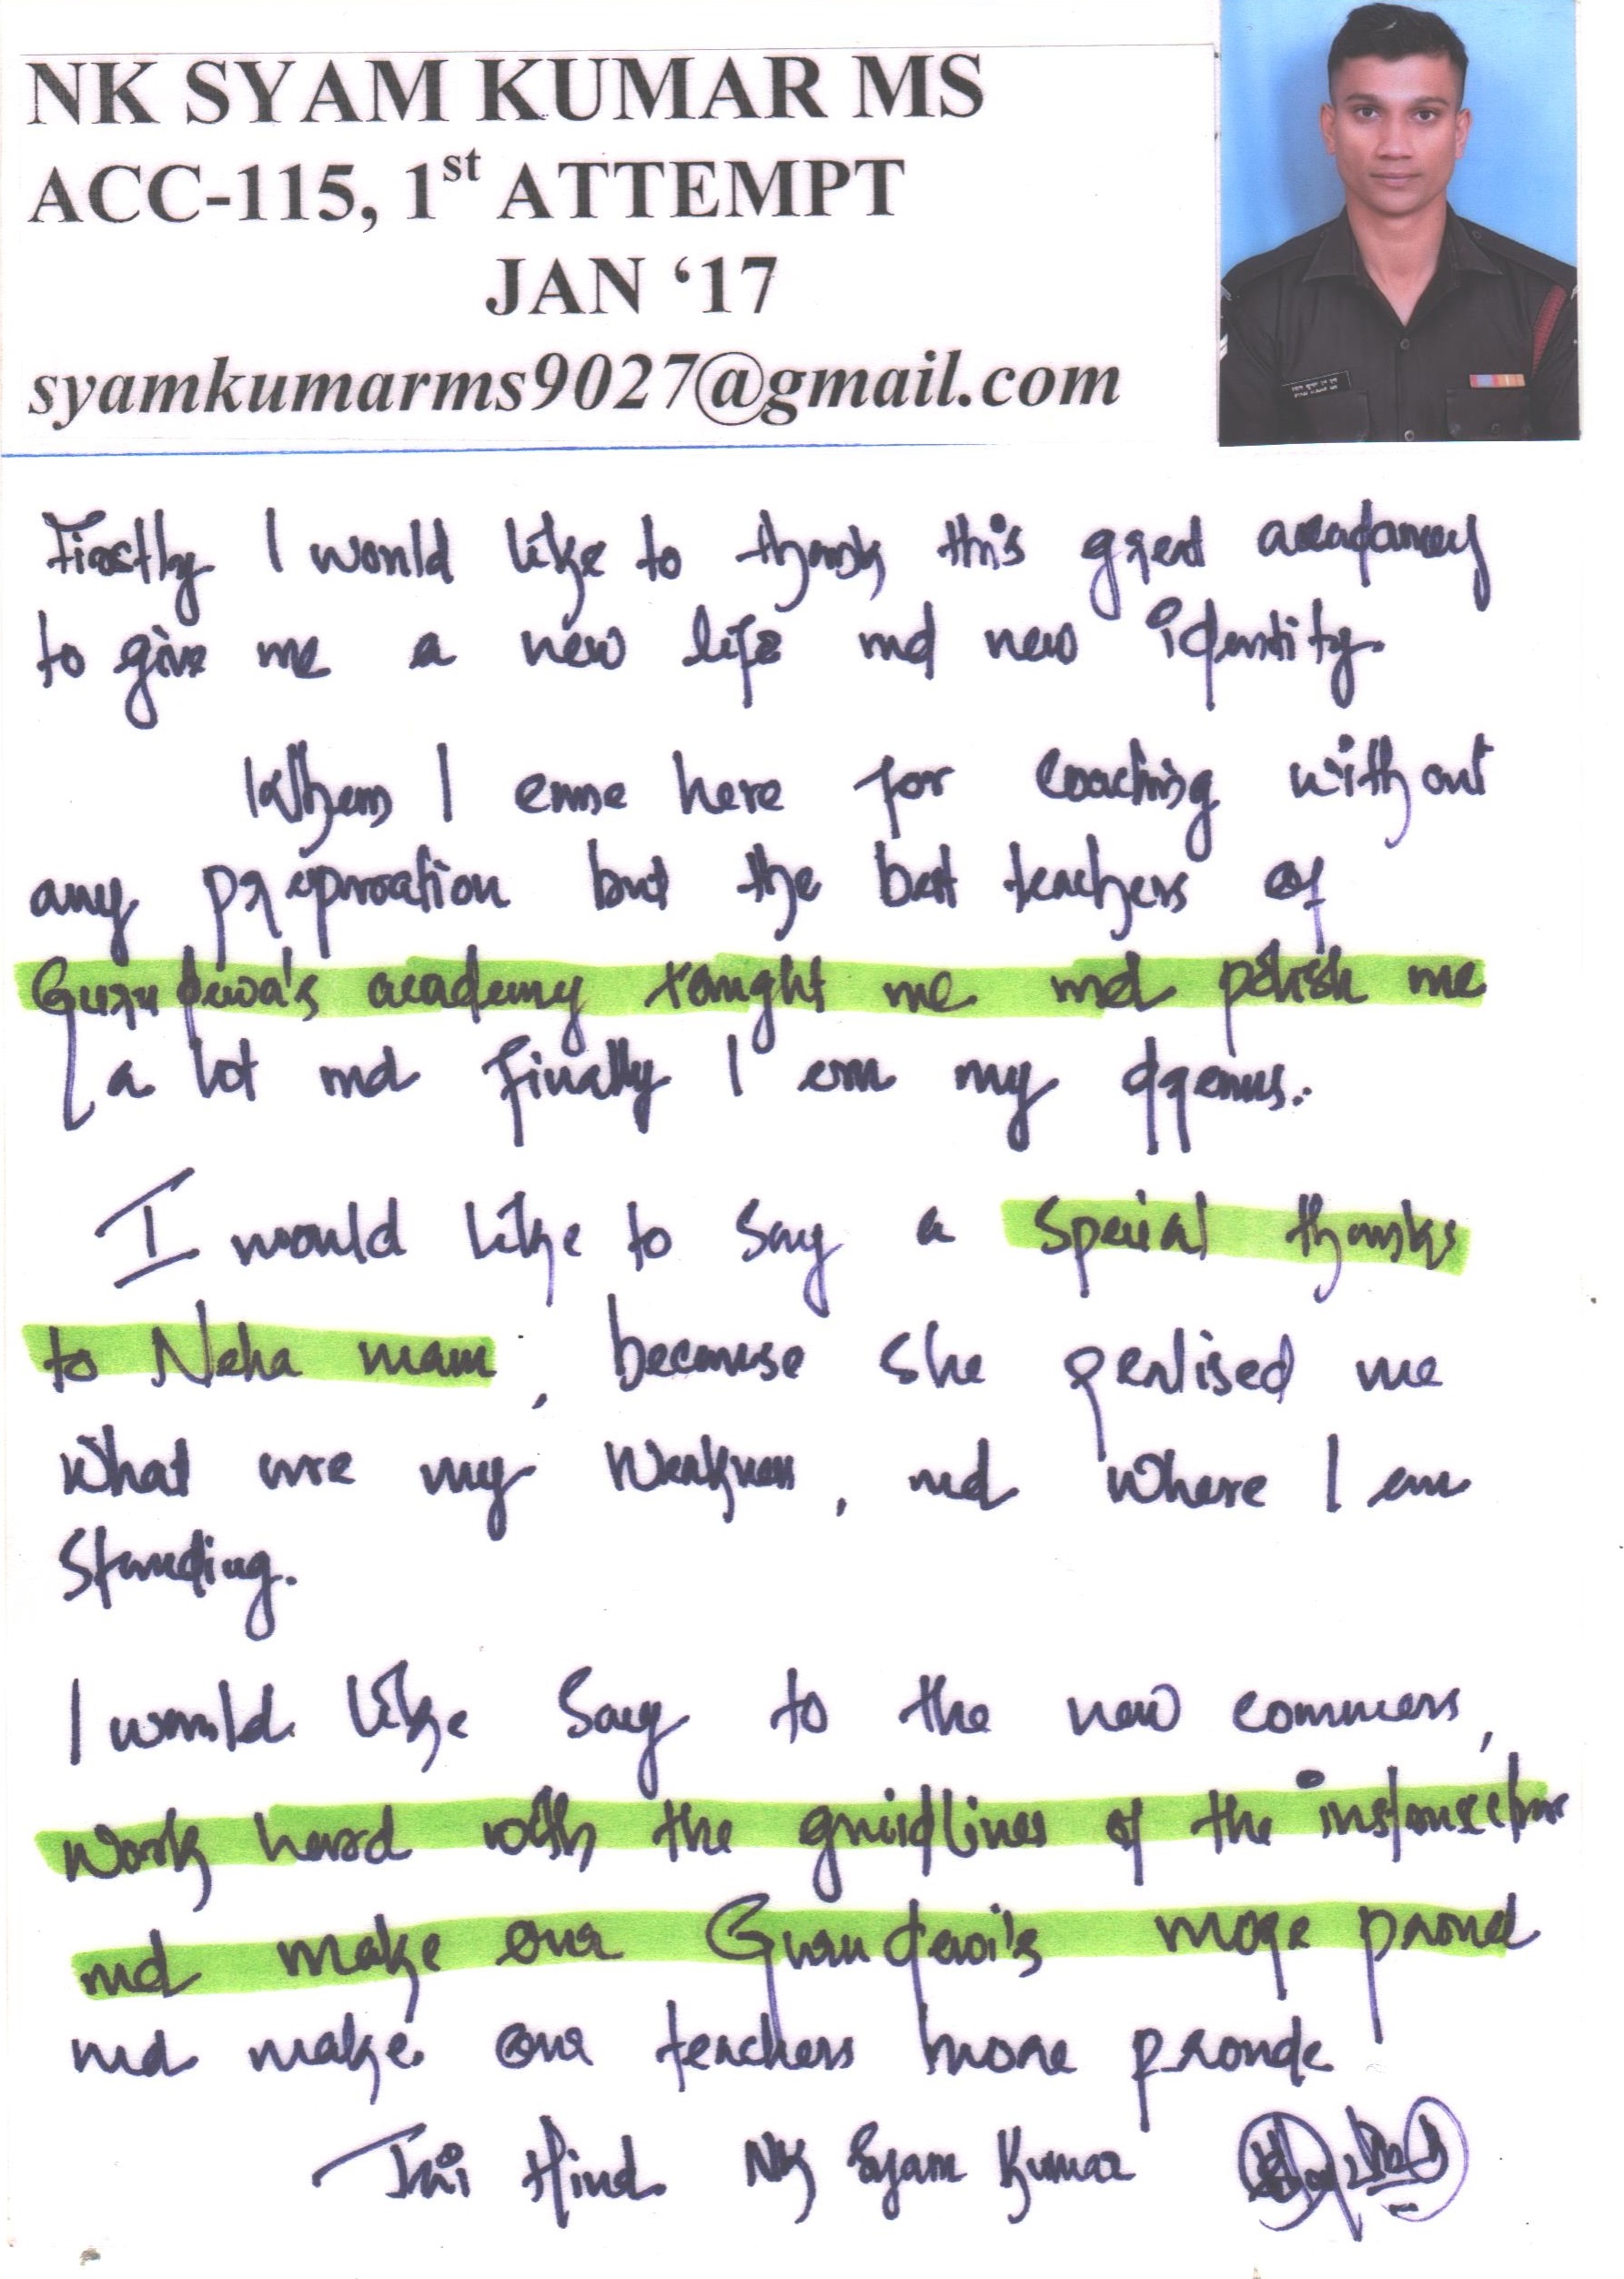 NK SYAM KUMAR MS
ACC-115, 1st ATTEMPT
JAN ‘17
syamkumarms9027@gmail.com
Firstly I would like to thank this great
to give me a new life and new identity.
When I came here for coaching without
any but the best teachers of
Gurudewa's academy taught me and polish me
a lot and finally I my dreams.
I would like to say a special thanks
to Neha mam, because she me
what are my weakness, and where I am
standing.
I would like say to the new commers,
work hard with the guidlines of the
and make our more proud
and make our teachers more proude
Jai Hind. NK Syam Kumar